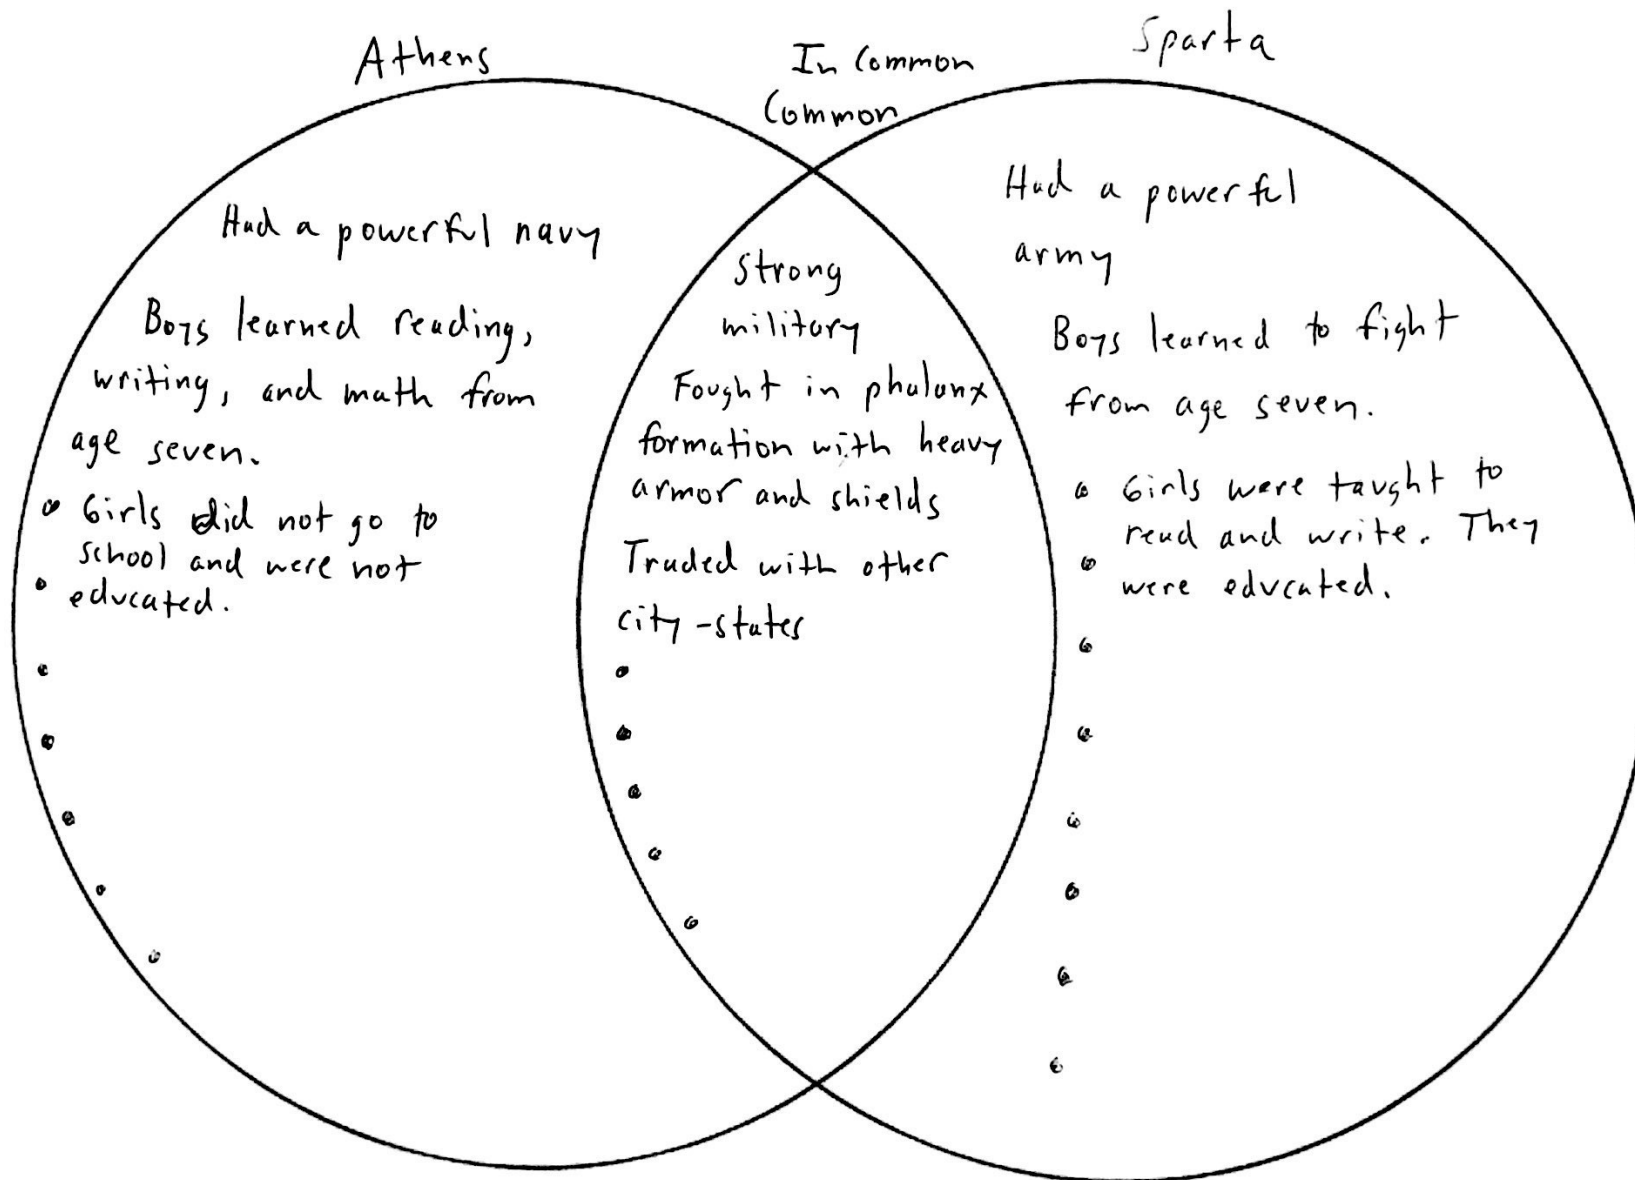 Athens
In Common
Common
Sparta
Had a powerful navy
Boys learned reading,
writing, and math from
age seven.
• Girls did not go to
school and were not
educated.
Strong
military
Fought in phalanx
formation with heavy
armor and shields
Traded with other
city-states
Had a powerful
army
Boys learned to fight
from age seven.
• Girls were taught to
read and write. They
were educated.